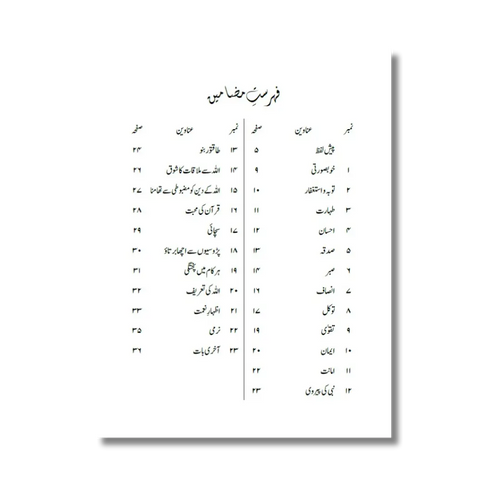 فہرستِ مضامین
نمبر عناوین صفحہ
پیش لفظ ۵
۱ خوبصورتی ۹
۲ توبہ و استغفار ۱۰
۳ طہارت ۱۱
۴ احسان ۱۲
۵ صدقہ ۱۳
۶ صبر ۱۴
۷ انصاف ۱۶
۸ توکل ۱۷
۹ تقویٰ ۱۹
۱۰ ایمان ۲۰
۱۱ امانت ۲۲
۱۲ نبی کی پیروی ۲۳
نمبر عناوین صفحہ
۱۳ طاقتور بنو ۲۴
۱۴ اللہ سے ملاقات کا شوق ۲۶
۱۵ اللہ کے دین کو مضبوطی سے تھامنا ۲۷
۱۶ قرآن کی محبت ۲۸
۱۷ سچائی ۲۹
۱۸ پڑوسیوں سے اچھا برتاؤ ۳۰
۱۹ ہر کام میں پختگی ۳۱
۲۰ اللہ کی تعریف ۳۲
۲۱ اظہارِ نعمت ۳۳
۲۲ نرمی ۳۵
۲۳ آخری بات ۳۶